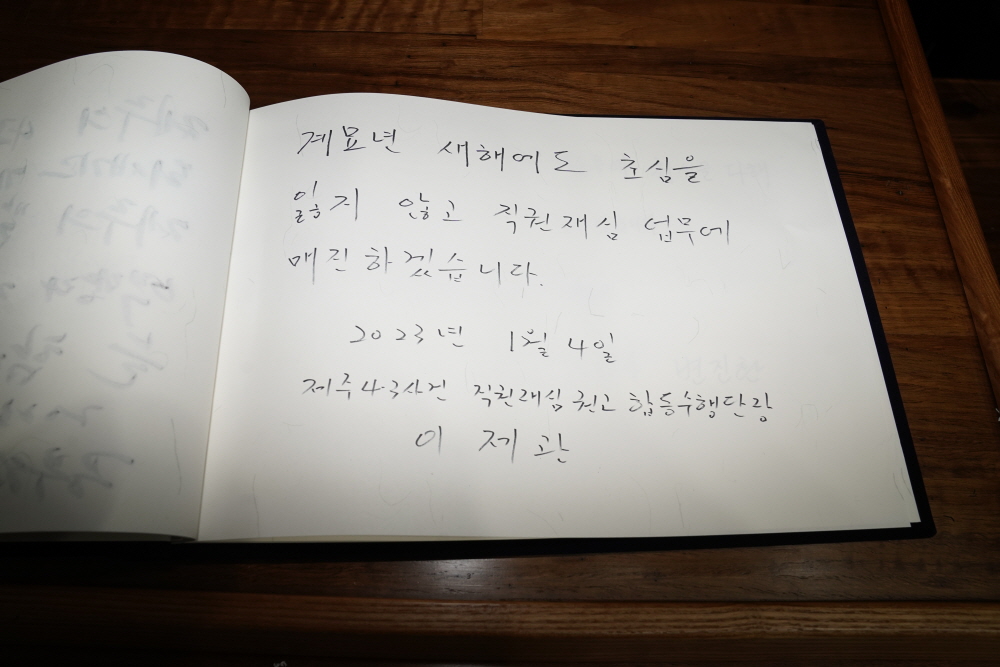 계묘년 새해에도 초심을
잃지 않고 직권재심 업무에
매진하겠습니다.
2023년 1월 4일
제주4·3사건 직권재심 권고 합동수행단장
이제관